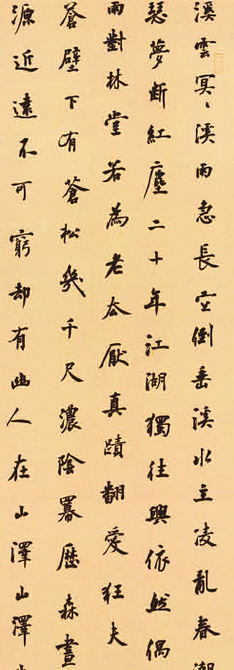 溪雲冥〻溪雨急長空倒垂溪水立凌亂春潮
瑟夢斷紅塵二十年江湖獨往興依然偶
雨對林堂若為老厭真蹟翻愛狂夫
蒼壁下有蒼松幾千尺濃陰羃歷森晝
源近遠不可窮却有幽人在山澤山澤